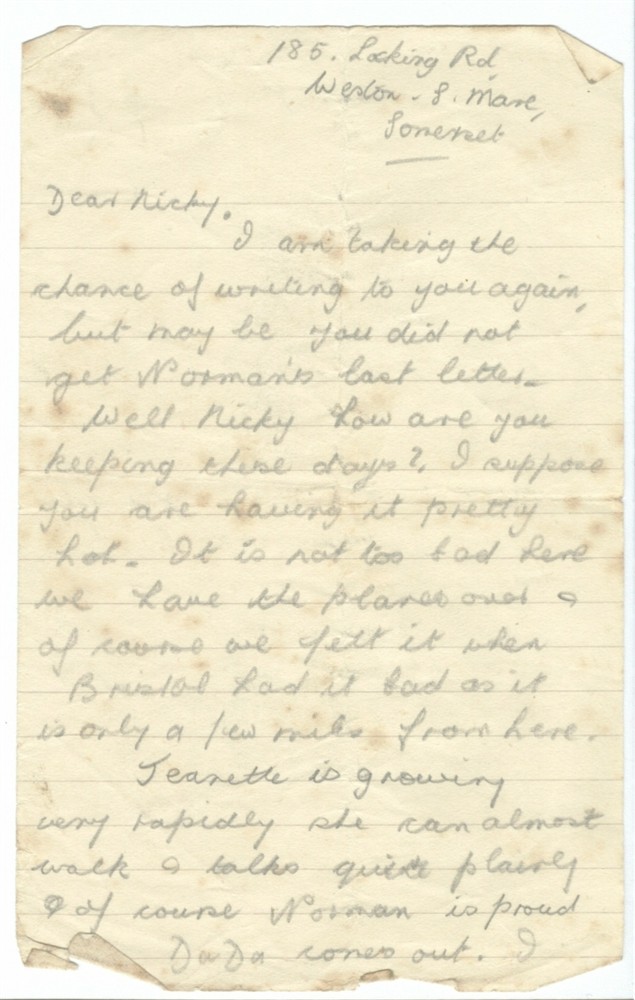 185. Locking Rd
Weston. S. Mare,
Somerset
Dear Nicky.
I am taking the
chance of writing to you again,
but may be you did not
get Norman's last letter.
Well Nicky how are you
keeping these days?. I suppose
you are having it pretty
hot. It is not too bad here
we have the planes over &
of course we felt it when
Bristol had it bad as it
is only a few miles from here.
Jeanette is growing
very rapidly she can almost
walk & talks quite plainly
& of course Norman is proud
DaDa comes out. I